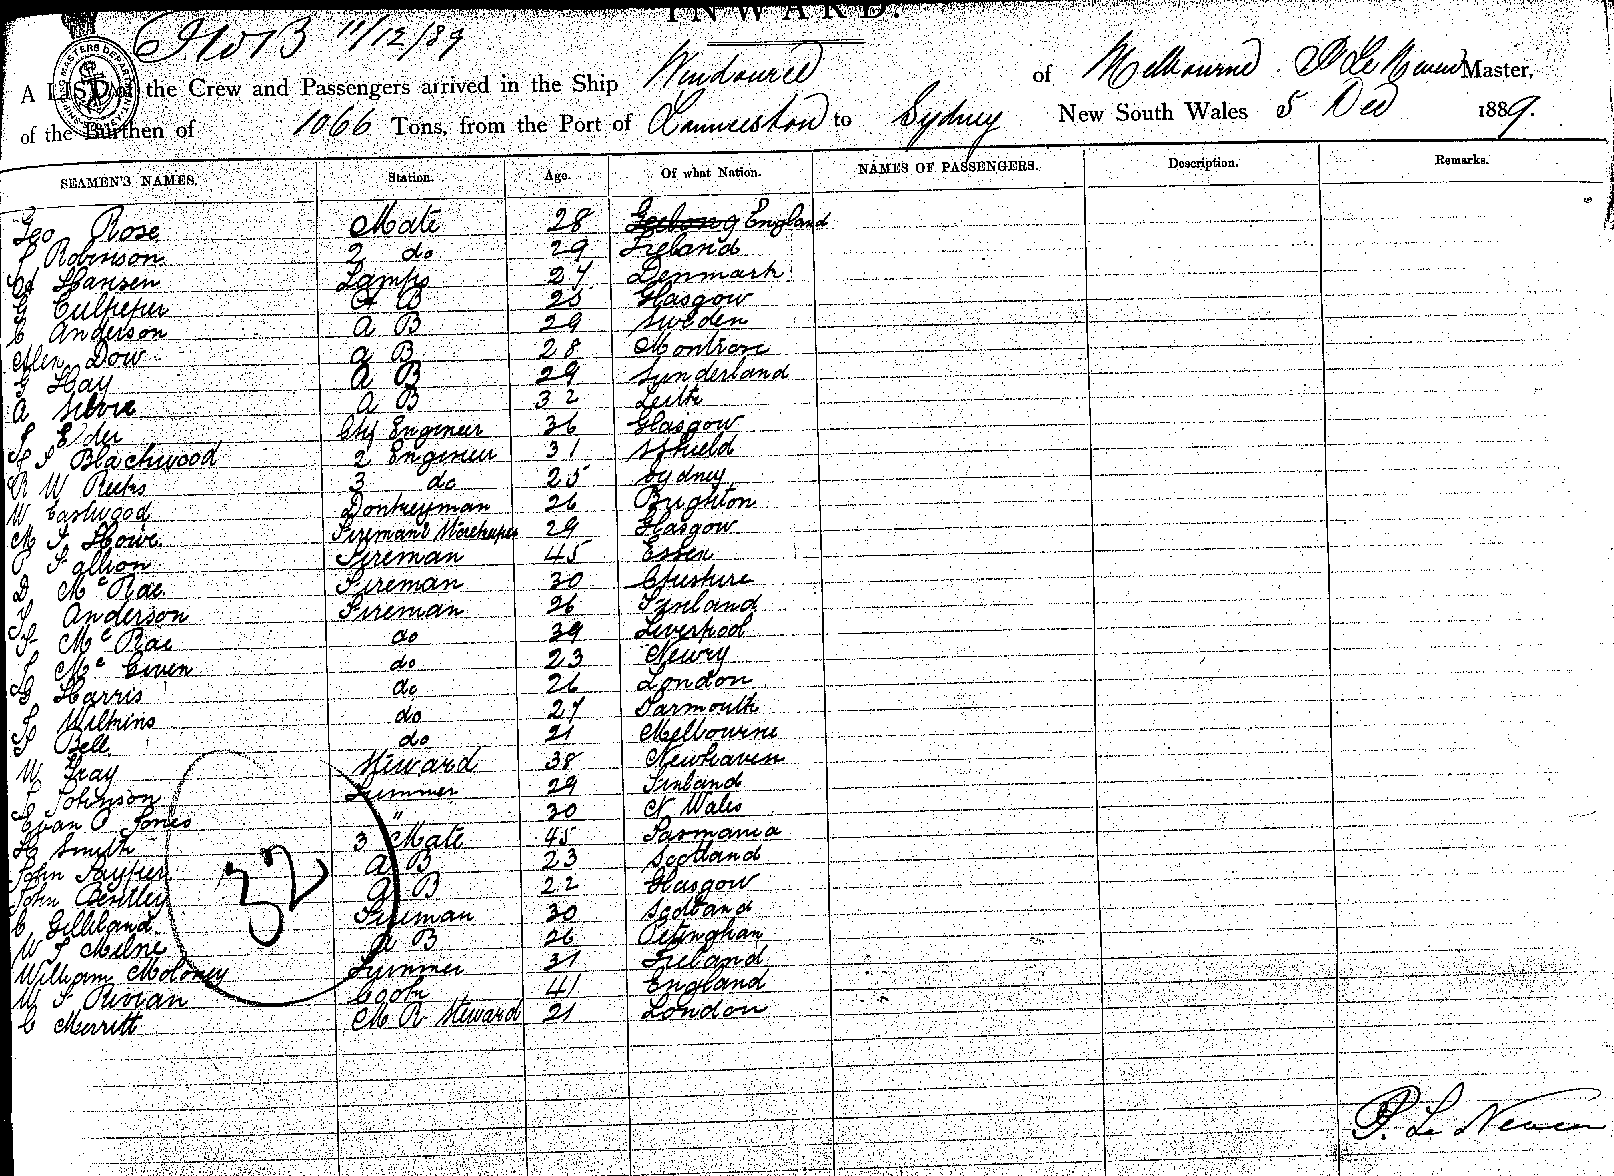 INWARD.
11/12/89
A LIST of the Crew and Passengers arrived in the Ship Windouree of Melbourne P Le Neveu Master,
of the Burthen of 1066 Tons, from the Port of Launceston to Sydney New South Wales 5 Dec 1889.
SEAMEN'S NAMES. Station. Age. Of what Nation. NAMES OF PASSENGERS. Description. Remarks.
Geo Rose Mate 28 England
Robinson 2 do 29 Ireland
Hansen Lamps 27 Denmark
G Culpeper A B 25 Glasgow
C Anderson a B 29 Sweden
Alex Dow a B 28 Montrose
G Hay a B 29 Sunderland
A Silvie a B 32 Leith
Elder Chf Engineer 36 Glasgow
Blackwood 2 Engineer 31 Shield
R W Reeks 3 do 25 Sydney
W Eastwood Donkeyman 26 Brighton
M J Howe Fireman & Storekeeper 29 Glasgow
P Fallion Fireman 45 Essex
D McRae Fireman 30 Cheshire
Anderson Fireman 26 Ireland
McRae do 39 Liverpool
McEwen do 23 Newry
G Harris do 26 London
Wilkins do 27 Yarmouth
Bell do 21 Melbourne
W Gray Steward 38 Newhaven
Johnson Trimmer 29 Finland
Evan P Jones " 30 N Wales
H Smith 3 Mate 45 Tasmania
John a B 23 Scotland
John Bentley a B 22 Glasgow
C Gilliland Fireman 30 Scotland
W J Milne a B 26
William Moloney Trimmer 31 Ireland
W J Rivian Cook 41 England
C Merritt M R Steward 21 London
32
P. Le Neveu